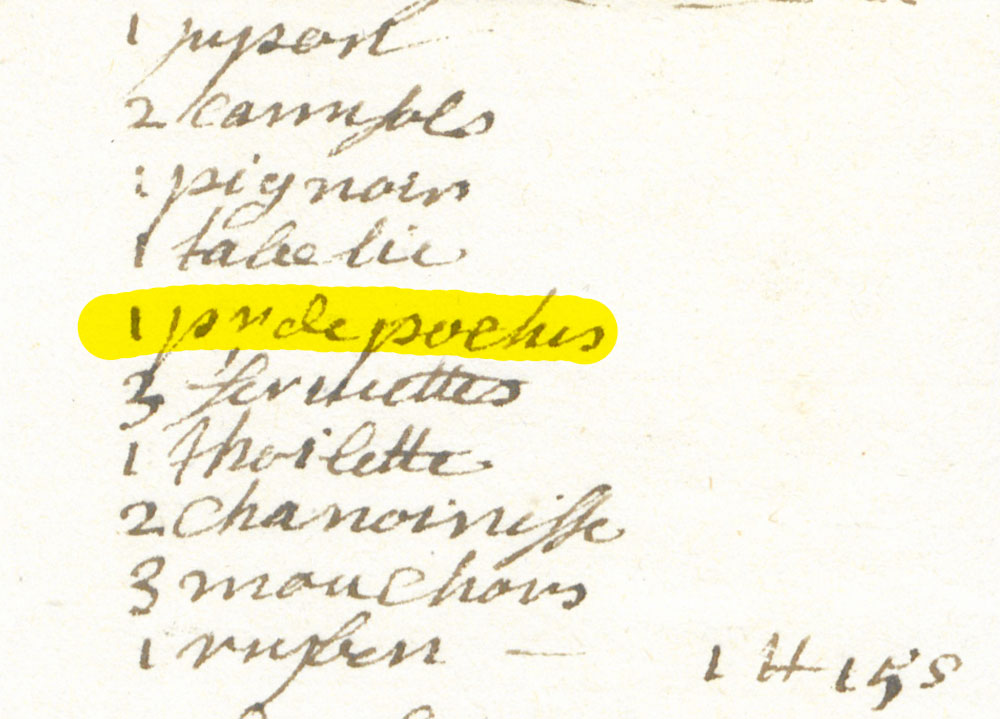 1 jupon
2 camisols
1 pignoir
1 tabelie
1 pr de poches
3 serviettes
1 thoilette
2 chanoinisse
3 mouchoirs
1 ruben — 1 tt 15 s